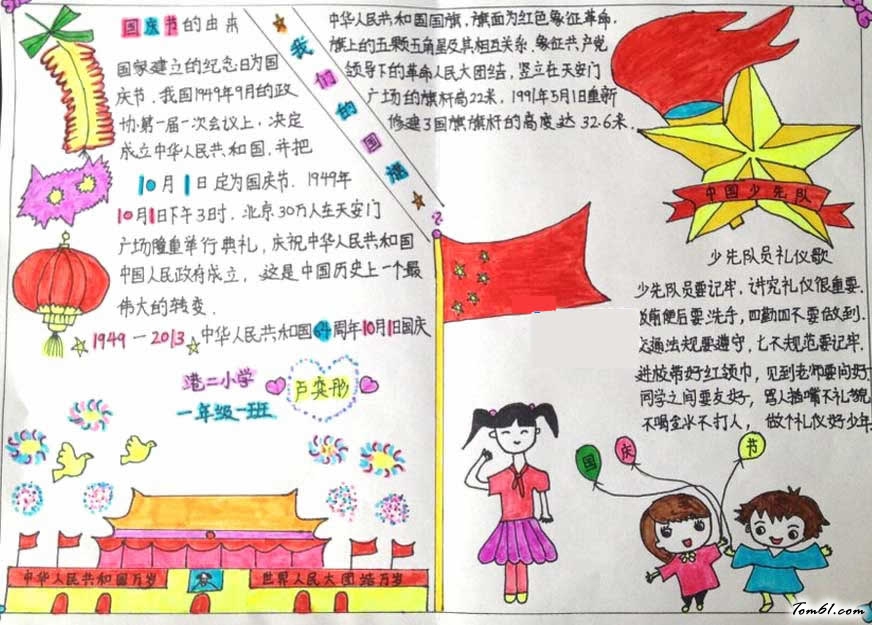 国庆节的由来
国家建立的纪念日为国
庆节.我国1949年9月的政
协第一届一次会议上,决定
成立中华人民共和国.并把
10月1日定为国庆节.1949年
10月1日下午3时.北京30万人在天安门
广场隆重举行典礼,庆祝中华人民共和国
中国人民政府成立,这是中国历史上一个最
伟大的转变.
1949－2013中华人民共和国64周年10月1日国庆
港二小学
一年级一班
卢奕彤
我们的国旗
中华人民共和国国旗,旗面为红色象征革命.
旗上的五颗五角星及其相互关系.象征共产党
领导下的革命人民大团结,竖立在天安门
广场的旗杆高22米,1991年5月1日重新
修建了国旗旗杆的高度达32.6米.
中国少先队
少先队员礼仪歌
少先队员要记牢,讲究礼仪很重要.
饭前便后要洗手,四勤四不要做到.
交通法规要遵守,七不规范要记牢.
进校带好红领巾,见到老师要问好
同学之间要友好,骂人插嘴不礼貌
不喝生水不打人,做个礼仪好少年.
国庆节
中华人民共和国万岁
世界人民大团结万岁
Tom61.com